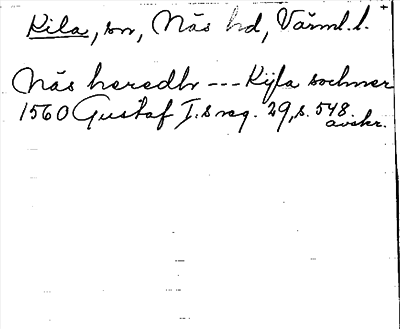 Kila, sn, Näs hd, Värml. l. +
Näsheredh --- Kijla sochner
1560 Gustaf I.s reg. 29, s. 548
avskr.